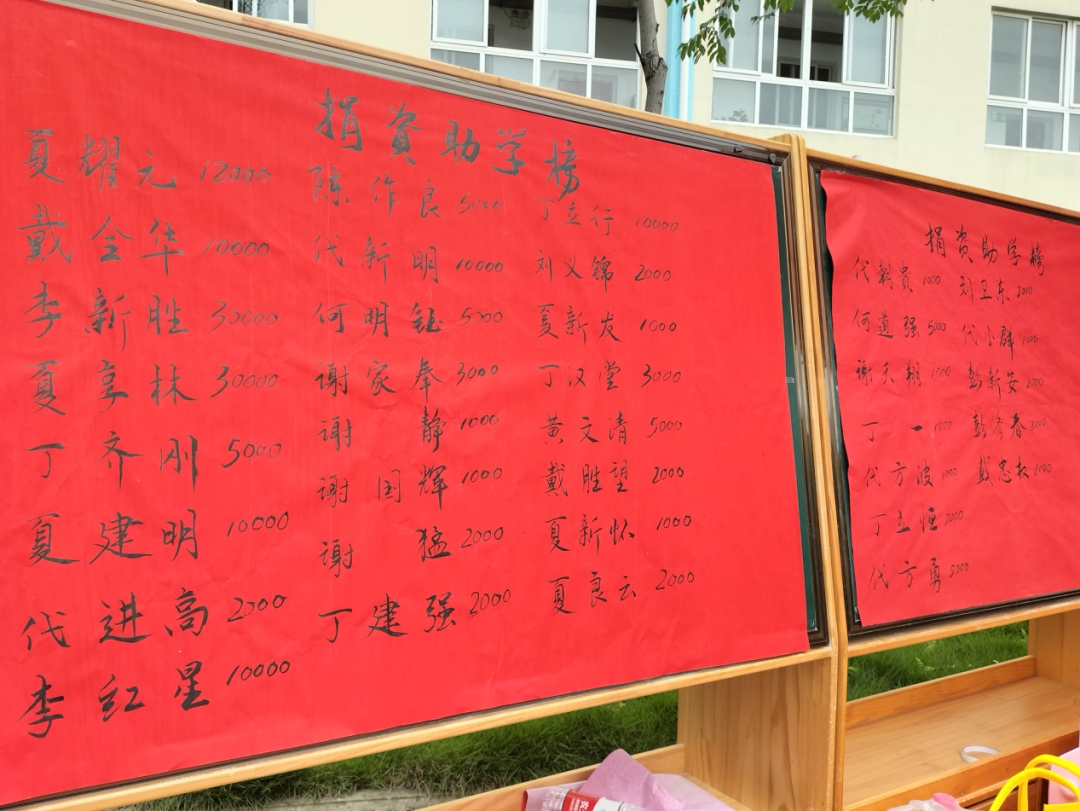 捐资助学榜
夏耀元 12000
戴全华 10000
李新胜 30000
夏享林 30000
丁齐刚 5000
夏建明 10000
代进高 2000
李红星 10000
陈作良 5000
代新明 10000
何明钰 5000
谢家奉 3000
谢静 1000
谢国辉 1000
谢猛 2000
丁建强 2000
丁立行 10000
刘义锦 2000
夏新发 1000
丁汉堂 3000
黄文清 5000
戴胜望 2000
夏新怀 1000
夏良云 2000
捐资助学榜
代朝贵 1000
何遵强 5000
谢天翔 1000
丁一 1000
代方波 1000
丁立恒 2000
代方勇 5000
刘卫东 2000
代小群 1000
彭新安 2000
戴忠权 2000